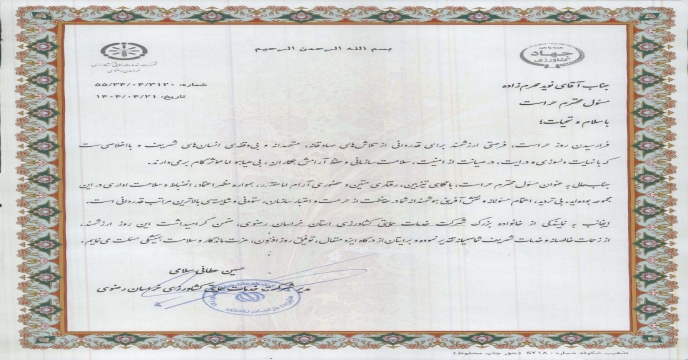 بسم الله الرحمن الرحیم
جهاد کشاورزی
شماره: ۵۵/۳۴/۰۴/۳۱۲۰
تاریخ: ۱۴۰۴/۰۴/۲۱
جناب آقای نوید محرم زاده
مسئول محترم حراست
با سلام و تحیات؛
فرا رسیدن روز حراست، فرصتی ارزشمند برای قدردانی از تلاش‌های صادقانه، متعهدانه و بی‌وقفه‌ی انسان‌های شریف و با اخلاصی ست
که با نهایت دلسوزی و درایت، در صیانت از امنیت، سلامت سازمانی و حفظ آرامش همکاران، بی‌هیاهو اما مؤثر گام برمی‌دارند.
جنابعالی به عنوان مسئول محترم حراست، با نگاهی تیزبین، رفتاری متین و حضوری آرام اما مقتدر، همواره مظهر اعتماد، انضباط و سلامت اداری در این
مجموعه بوده‌اید. بی‌تردید، اهتمام مسئولانه و نقش آفرین شما در حفاظت از حرمت و اعتبار سازمان، ستودنی و شایسته‌ی بالاترین مراتب قدردانی است.
اینجانب به نمایندگی از خانواده بزرگ شرکت خدمات حمایتی کشاورزی استان خراسان رضوی، ضمن گرامیداشت این روز ارزشمند،
از زحمات خالصانه و خدمات شریف شما صمیمانه تقدیر نموده و برایتان از درگاه ایزد متعال، توفیق روزافزون، عزت ماندگار و سلامت همیشگی مسئلت می‌نمایم.
حسین عطائی سلامی
مدیر شرکت خدمات حمایتی کشاورزی خراسان رضوی